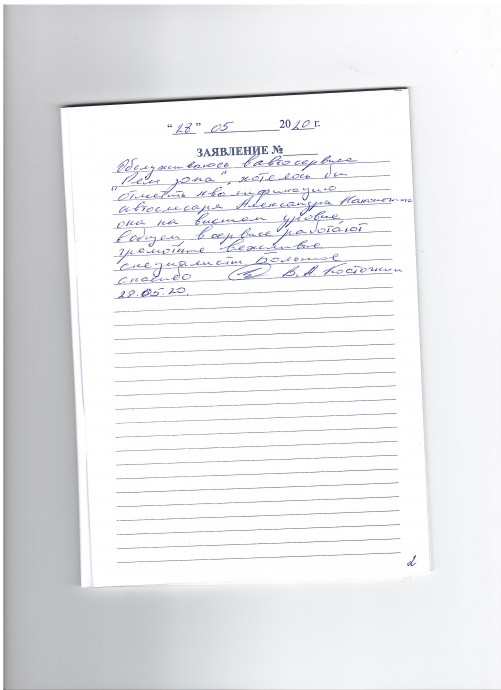 "28" 05 2020 г.
ЗАЯВЛЕНИЕ №
Обслуживаюсь в автосервисе
"Рем зона", хотелось бы
отметить квалификацию
автослесаря Александра
она на высшем уровне,
в общем в сервисе работают
грамотные вежливые
специалисты Большое
спасибо В. А. Косточкин
28.05.20.
2